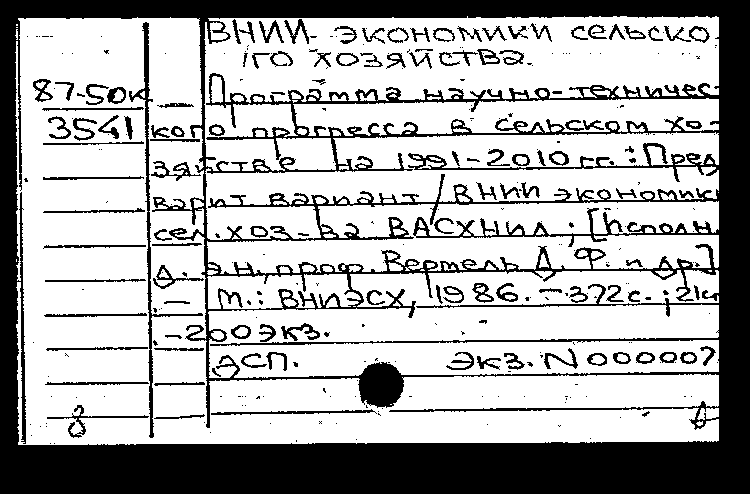 ВНИИ экономики сельско
го хозяйства.
87-50к Программа научно-техничес-
3541 кого прогресса в сельском хо-
зяйстве на 1991-2010 гг. : Пред
варит вариант / ВНИИ экономики
сел. хоз-ва ВАСХНИЛ ; [Исполн.
д. э.н., проф. Вертель Д. Ф. и др.]
– М.: ВНИЭСХ, 1986. – 372 с. ; 21
– 200 экз.
ДСП. Экз. N 000007
8